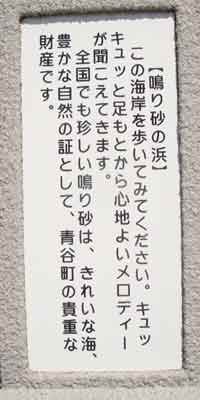 【鳴り砂の浜】
この海岸を歩いてみてください。キュッ
キュッと足もとから心地よいメロディー
が聞こえてきます。
全国でも珍しい鳴り砂は、きれいな海、
豊かな自然の証として、青谷町の貴重な
財産です。